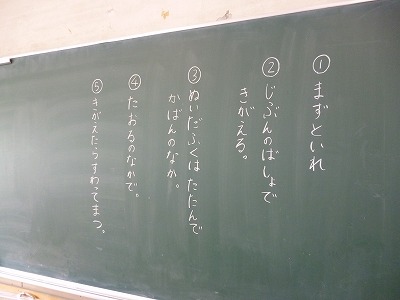 ① まずといれ
② じぶんのばしょで
きがえる。
③ ぬいだふくは たたんで
かばんのなか。
④ たおるのなかで。
⑤ きがえたらすわってまつ。